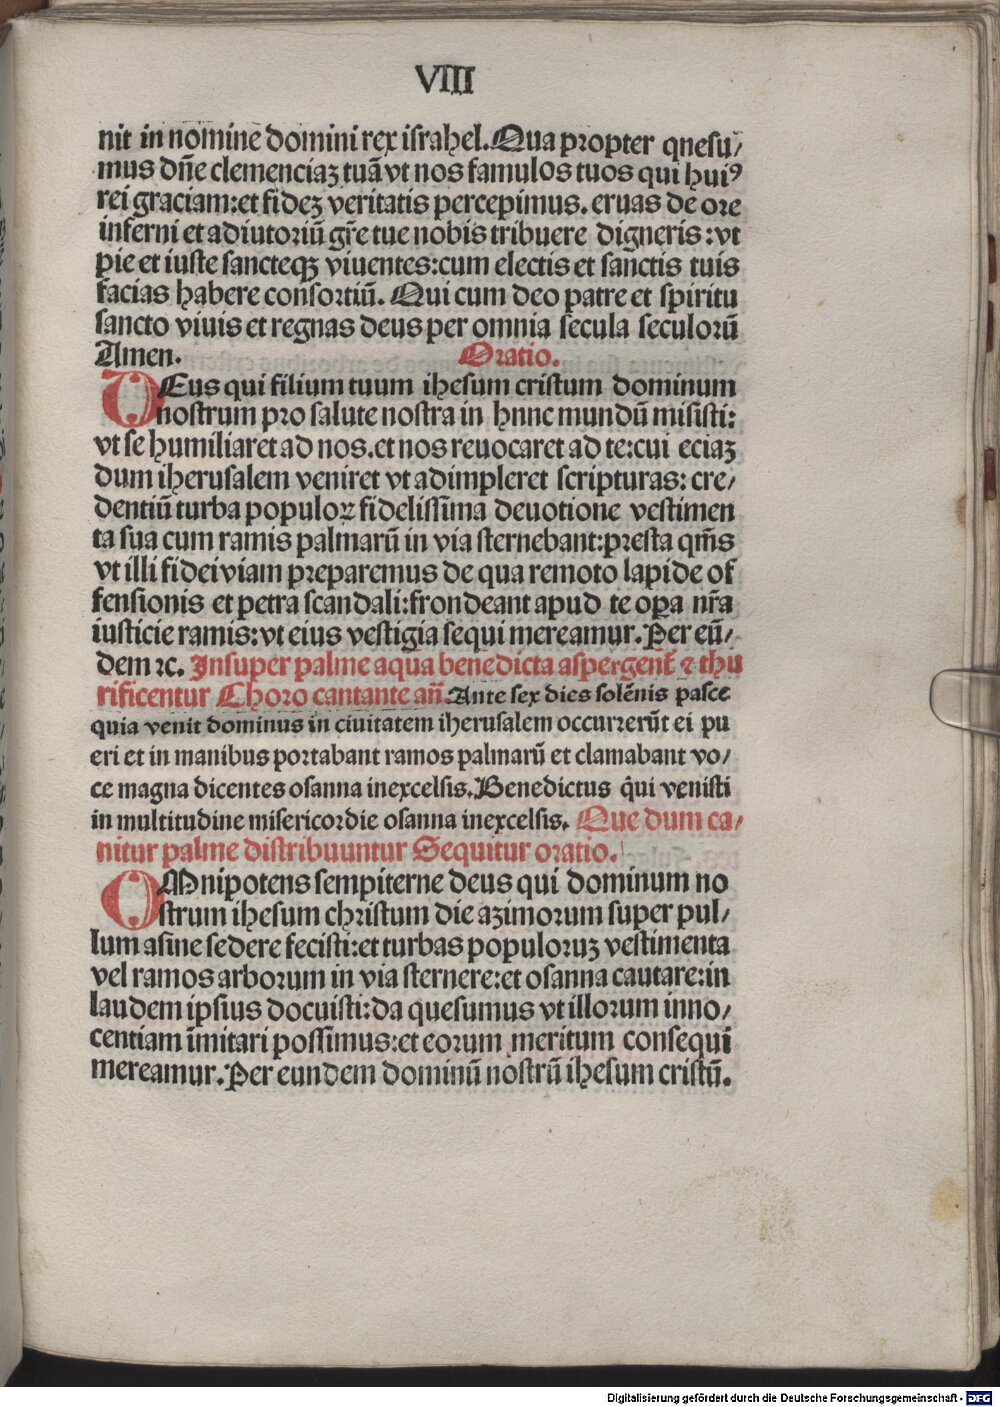 VIII
nit in nomine domini rex israhel. Qua propter qnesu/
mus dñe clemenciaꝫ tuã vt nos famulos tuos qui huiꝰ
rei graciam: et fideꝫ veritatis percepimus. eruas de ore
inferni et adiutoriũ gr̃e tue nobis tribuere digneris: vt
pie et iuste sancteqꝫ viuentes: cum electis et sanctis tuis
facias habere consortiũ. Qui cum deo patre et spiritu
sancto viuis et regnas deus per omnia secula seculorũ
Amen. Oratio.
DEus qui filium tuum ihesum cristum dominum
nostrum pro salute nostra in hnnc mundũ misisti:
vt se humiliaret ad nos. et nos reuocaret ad te: cui eciaꝫ
dum iherusalem veniret vt adimpleret scripturas: cre/
dentiũ turba populoꝝ fidelissima deuotione vestimen
ta sua cum ramis palmarũ in via sternebant: presta qm̃s
vt illi fidei viam preparemus de qua remoto lapide of
fensionis et petra scandali: frondeant apud te oꝑa nr̃a
iusticie ramis: vt eius vestigia sequi mereamur. Per eũ/
dem ⁊c. Insuper palme aqua benedicta aspergent̃ ⁊ thu
rificentur Choro cantante añ. Ante sex dies solẽnis pasce
quia venit dominus in ciuitatem iherusalem occurrerũt ei pu
eri et in manibus portabant ramos palmarũ et clamabant vo/
ce magna dicentes osanna inexcelsis. Benedictus q̃ui venisti
in multitudine misericordie osanna inexcelsis. Que dum ca/
nitur palme distribuuntur Sequitur oratio.
OMnipotens sempiterne deus qui dominum no
strum ihesum christum die azimorum super pul/
lum asine sedere fecisti: et turbas populoruꝫ vestimenta
vel ramos arborum in via sternere: et osanna cautare: in
laudem ipsius docuisti: da quesumus vt illorum inno/
centiam ĩmitari possimus: et eorum meritum consequi
mereamur. Per eundem dominũ nostrũ ihesum cristũ.
Digitalisierung gefördert durch die Deutsche Forschungsgemeinschaft - DFG